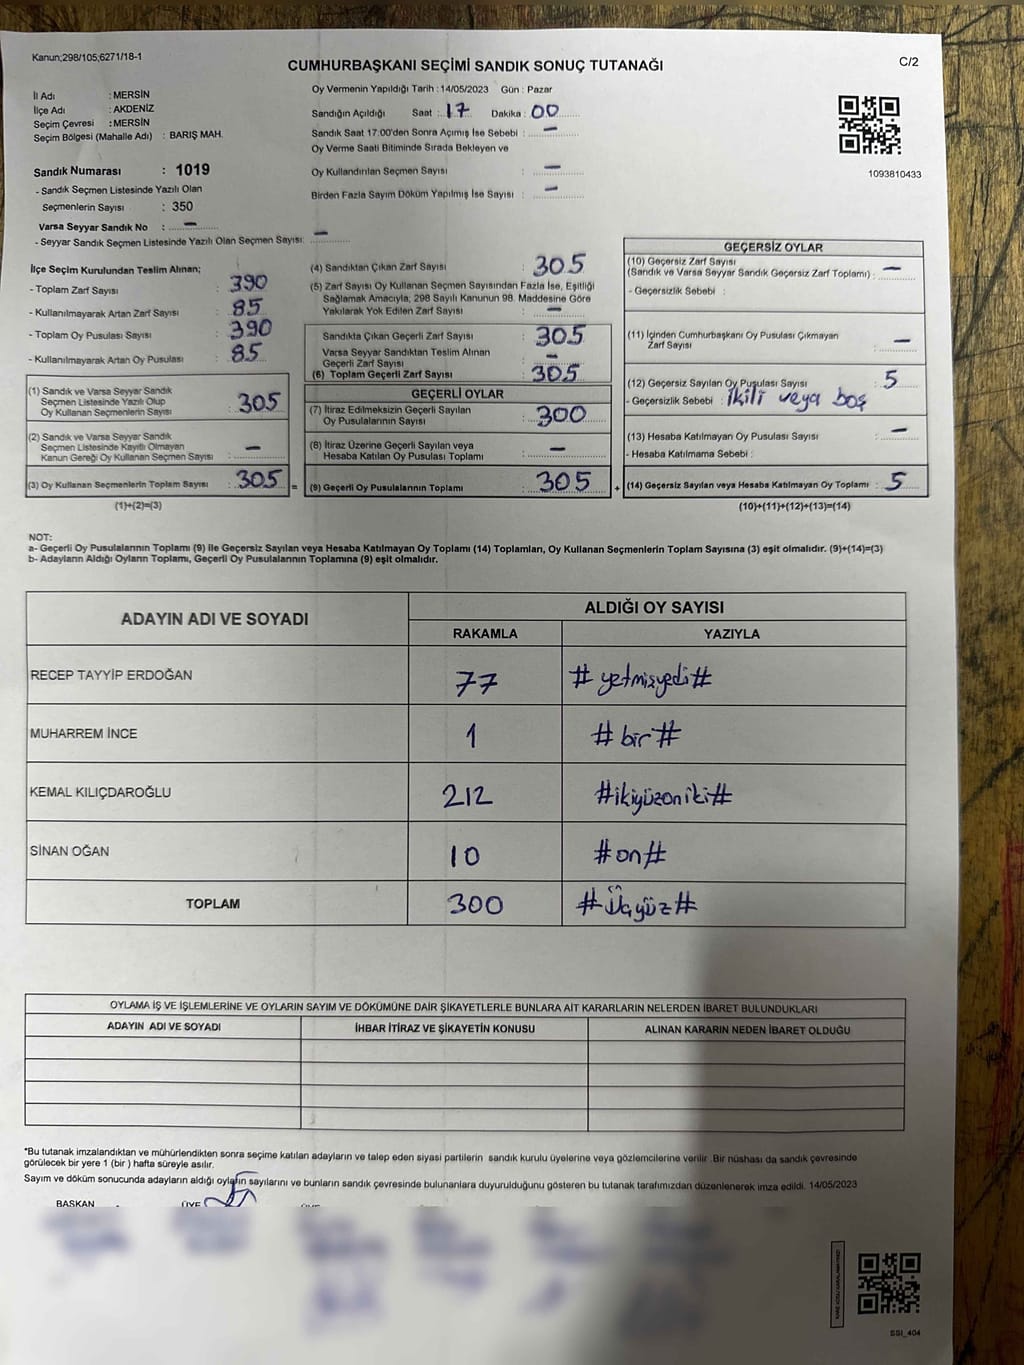 Kanun;298/105;6271/18-1
CUMHURBAŞKANI SEÇİMİ SANDIK SONUÇ TUTANAĞI
C/2
İl Adı : MERSİN
İlçe Adı : AKDENİZ
Seçim Çevresi : MERSİN
Seçim Bölgesi (Mahalle Adı) : BARIŞ MAH.
Sandık Numarası : 1019
- Sandık Seçmen Listesinde Yazılı Olan
Seçmenlerin Sayısı : 350
Varsa Seyyar Sandık No : –
- Seyyar Sandık Seçmen Listesinde Yazılı Olan Seçmen Sayısı: –
Oy Vermenin Yapıldığı Tarih : 14/05/2023 Gün : Pazar
Sandığın Açıldığı Saat : 17 Dakika : 00
Sandık Saat 17:00'den Sonra Açımış İse Sebebi : –
Oy Verme Saati Bitiminde Sırada Bekleyen ve
Oy Kullandırılan Seçmen Sayısı : –
Birden Fazla Sayım Döküm Yapılmış İse Sayısı : –
1093810433
İlçe Seçim Kurulundan Teslim Alınan;
- Toplam Zarf Sayısı : 390
- Kullanılmayarak Artan Zarf Sayısı : 85
- Toplam Oy Pusulası Sayısı : 390
- Kullanılmayarak Artan Oy Pusulası : 85
(1) Sandık ve Varsa Seyyar Sandık
Seçmen Listesinde Yazılı Olup
Oy Kullanan Seçmenlerin Sayısı : 305
(2) Sandık ve Varsa Seyyar Sandık
Seçmen Listesinde Kayıtlı Olmayan
Kanun Gereği Oy Kullanan Seçmen Sayısı : –
(3) Oy Kullanan Seçmenlerin Toplam Sayısı : 305
(1)+(2)=(3)
=
(4) Sandıktan Çıkan Zarf Sayısı : 305
(5) Zarf Sayısı Oy Kullanan Seçmen Sayısından Fazla İse, Eşitliği
Sağlamak Amacıyla, 298 Sayılı Kanunun 98. Maddesine Göre
Yakılarak Yok Edilen Zarf Sayısı : –
Sandıkta Çıkan Geçerli Zarf Sayısı : 305
Varsa Seyyar Sandıktan Teslim Alınan
Geçerli Zarf Sayısı : –
(6) Toplam Geçerli Zarf Sayısı : 305
GEÇERLİ OYLAR
(7) İtiraz Edilmeksizin Geçerli Sayılan
Oy Pusulalarının Sayısı : 300
(8) İtiraz Üzerine Geçerli Sayılan veya
Hesaba Katılan Oy Pusulası Toplamı : –
(9) Geçerli Oy Pusulalarının Toplamı : 305
+
GEÇERSİZ OYLAR
(10) Geçersiz Zarf Sayısı
(Sandık ve Varsa Seyyar Sandık Geçersiz Zarf Toplamı) : –
- Geçersizlik Sebebi :
(11) İçinden Cumhurbaşkanı Oy Pusulası Çıkmayan
Zarf Sayısı : –
(12) Geçersiz Sayılan Oy Pusulası Sayısı : 5
- Geçersizlik Sebebi : ikili veya boş
(13) Hesaba Katılmayan Oy Pusulası Sayısı : –
- Hesaba Katılmama Sebebi :
(14) Geçersiz Sayılan veya Hesaba Katılmayan Oy Toplamı : 5
(10)+(11)+(12)+(13)=(14)
NOT:
a- Geçerli Oy Pusulalarının Toplamı (9) ile Geçersiz Sayılan veya Hesaba Katılmayan Oy Toplamı (14) Toplamları, Oy Kullanan Seçmenlerin Toplam Sayısına (3) eşit olmalıdır. (9)+(14)=(3)
b- Adayların Aldığı Oyların Toplamı, Geçerli Oy Pusulalarının Toplamına (9) eşit olmalıdır.
ADAYIN ADI VE SOYADI
ALDIĞI OY SAYISI
RAKAMLA YAZIYLA
RECEP TAYYİP ERDOĞAN 77 # yetmişyedi #
MUHARREM İNCE 1 # bir #
KEMAL KILIÇDAROĞLU 212 #ikiyüzoniki#
SİNAN OĞAN 10 #on#
TOPLAM 300 #Üçyüz#
OYLAMA İŞ VE İŞLEMLERİNE VE OYLARIN SAYIM VE DÖKÜMÜNE DAİR ŞİKAYETLERLE BUNLARA AİT KARARLARIN NELERDEN İBARET BULUNDUKLARI
ADAYIN ADI VE SOYADI İHBAR İTİRAZ VE ŞİKAYETİN KONUSU ALINAN KARARIN NEDEN İBARET OLDUĞU
*Bu tutanak imzalandıktan ve mühürlendikten sonra seçime katılan adayların ve talep eden siyasi partilerin sandık kurulu üyelerine veya gözlemcilerine verilir. Bir nüshası da sandık çevresinde
görülecek bir yere 1 (bir ) hafta süreyle asılır.
Sayım ve döküm sonucunda adayların aldığı oyların sayılarını ve bunların sandık çevresinde bulunanlara duyurulduğunu gösteren bu tutanak tarafımızdan düzenlenerek imza edildi. 14/05/2023
BAŞKAN ÜYE
SSI_404